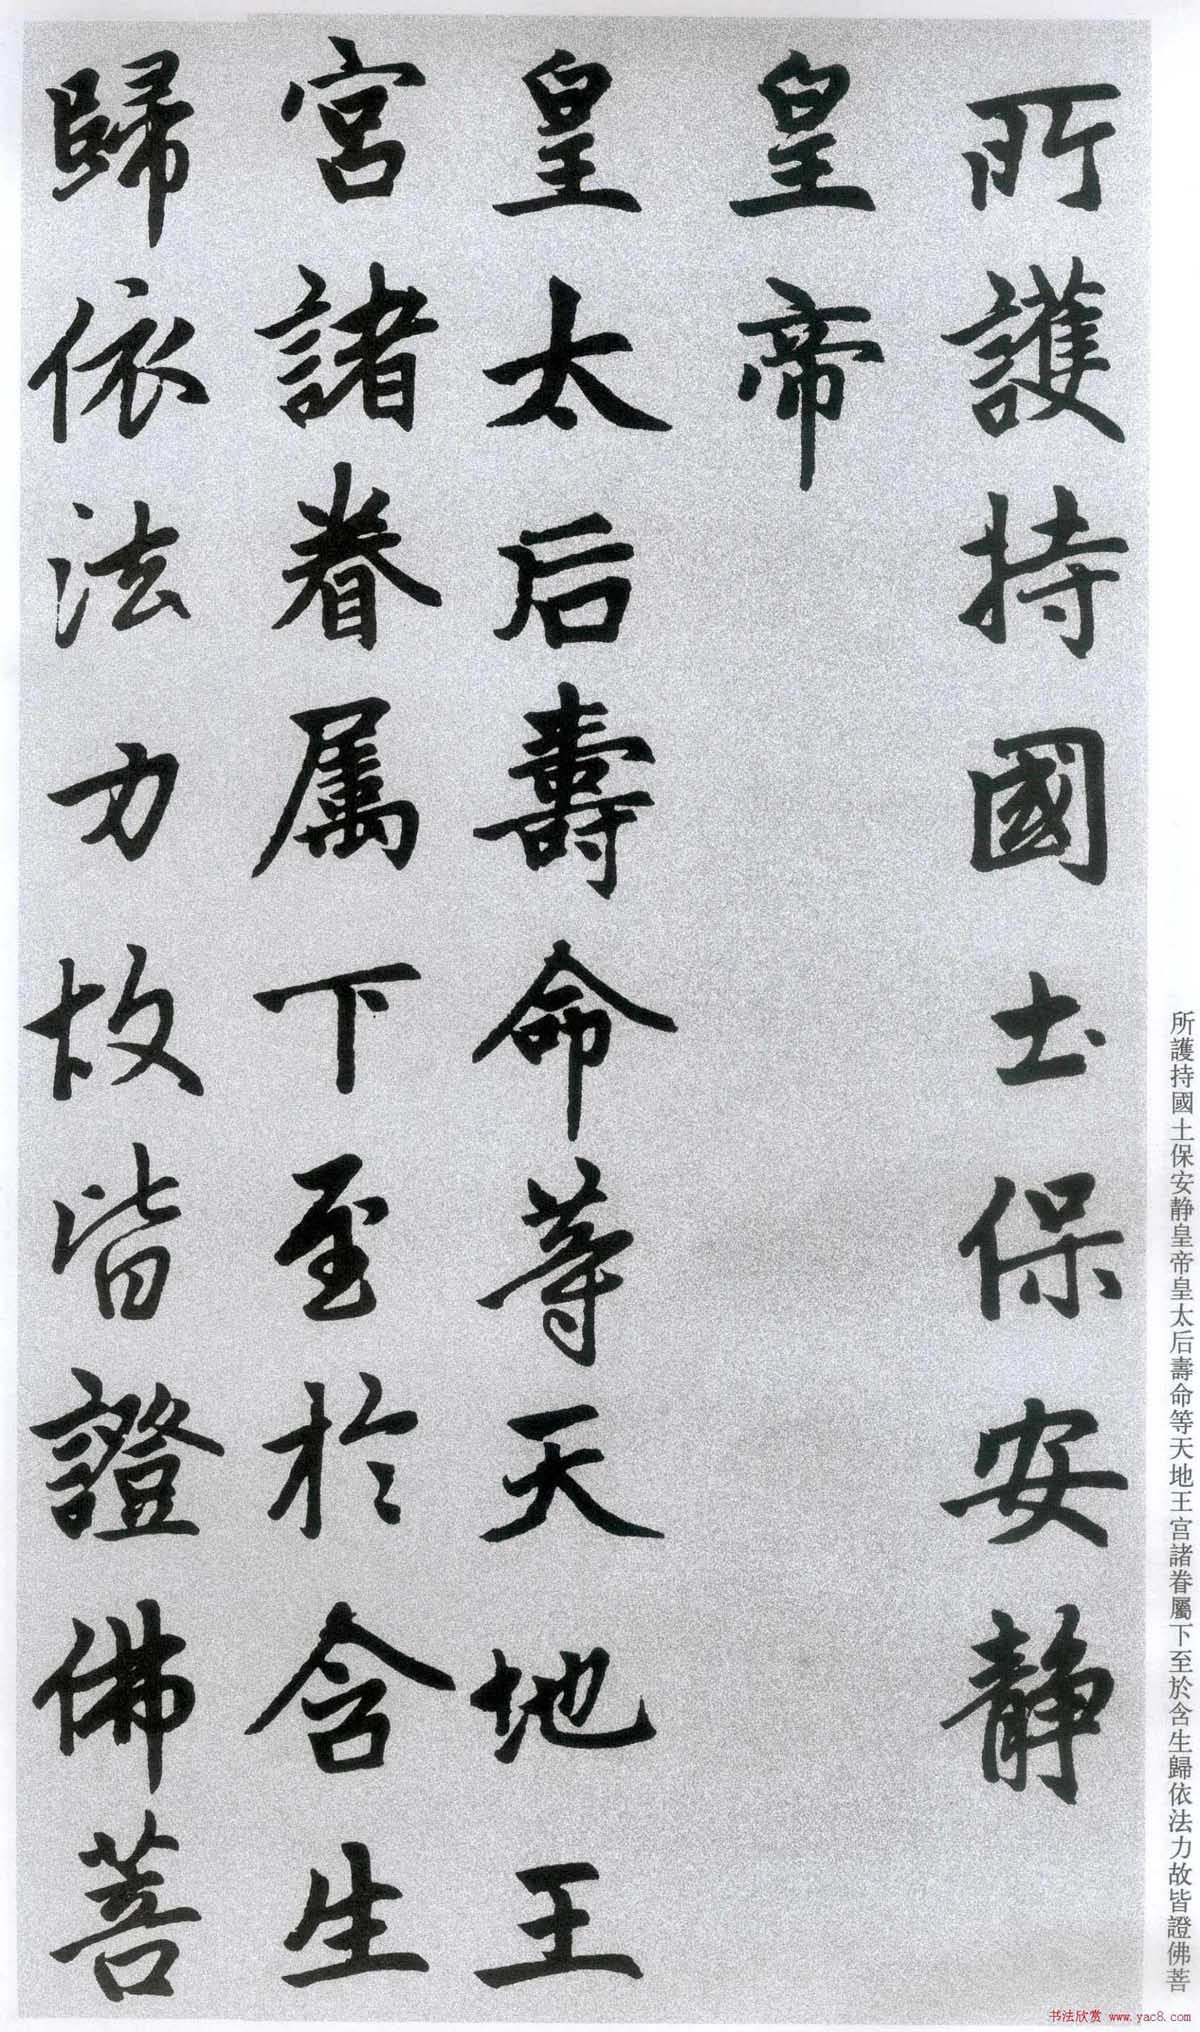 所護持國土保安静
皇帝
皇太后壽命等天地王
宮諸眷属下至於含生
歸依法力故皆證佛菩
所護持國土保安静皇帝皇太后壽命等天地王宫諸眷屬下至於含生歸依法力故皆證佛菩
书法欣赏 www.yac8.com